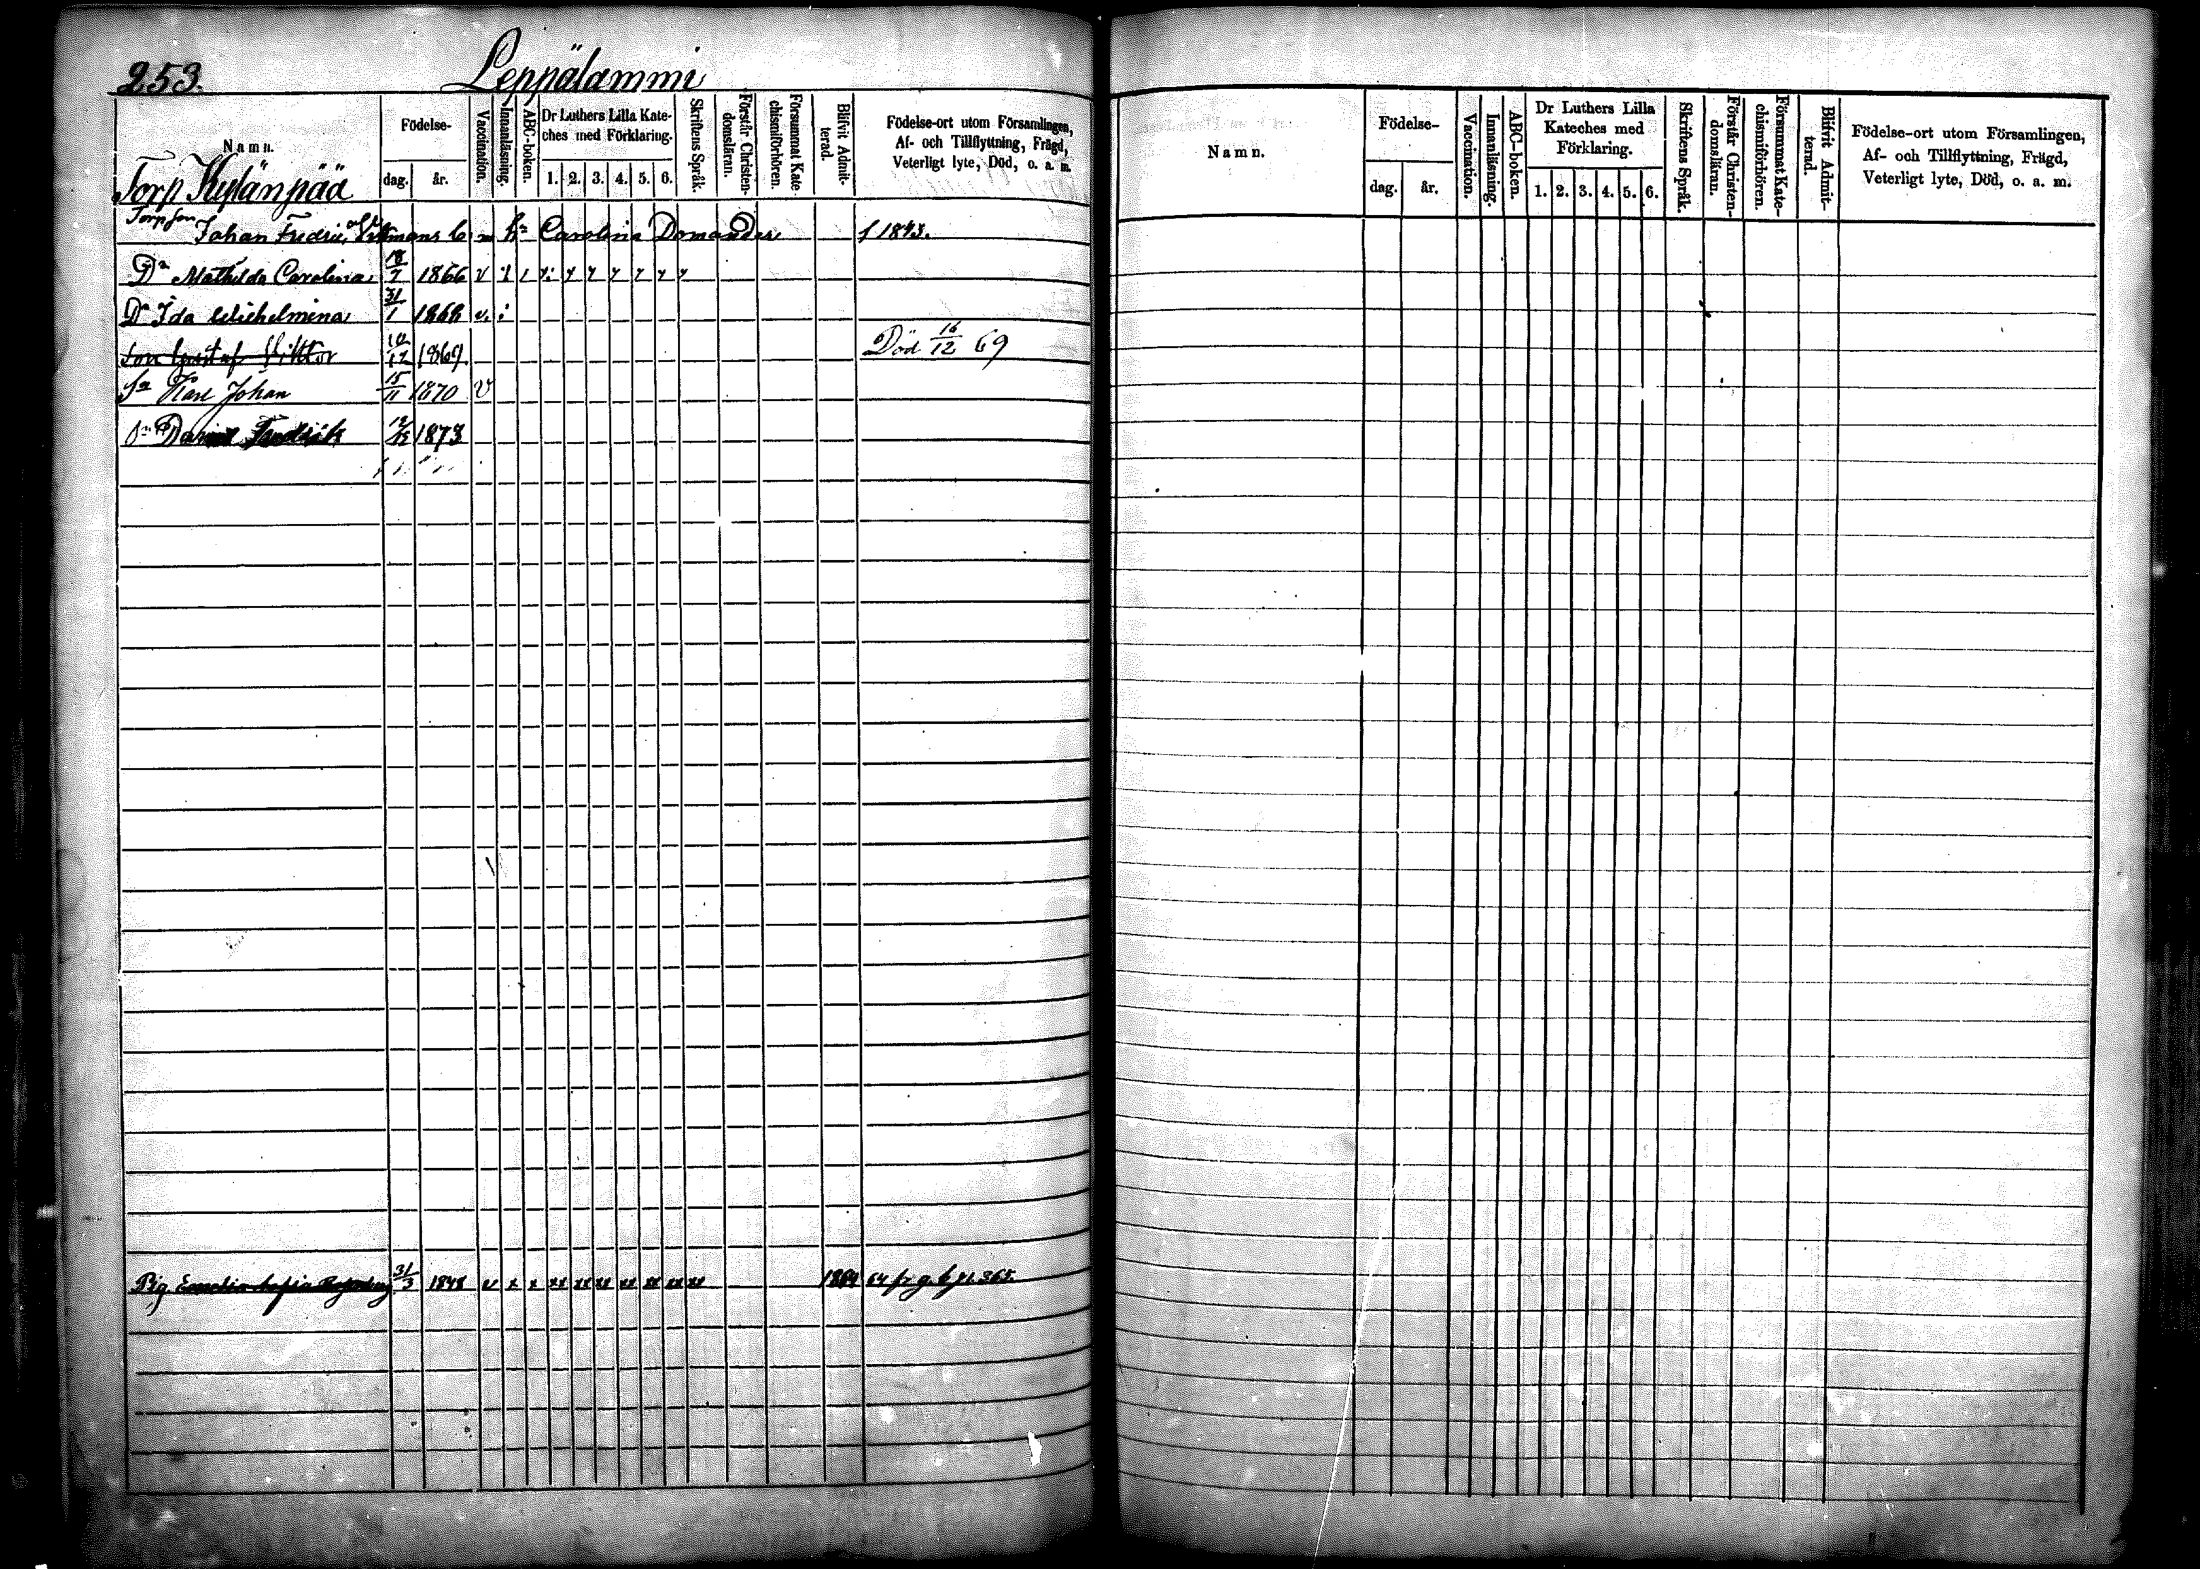 253.
Leppälammi
Namn.
Födelse-
dag.
år.
Vaccination.
Innanläsning.
ABC-boken.
Dr Luthers Lilla Kate-
ches med Förklaring.
1. 2. 3. 4. 5. 6.
Skriftens Språk.
Förstår Christen-
domsläran.
Försummat Kate-
chismiförhören.
Blifvit Admit-
terad.
Födelse-ort utom Församlingen,
Af- och Tillflyttning, Frägd,
Veterligt lyte, Död, o. a. m.
Torp Kylänpää
Johan Fredric Carolina Domander f 1843.
Dr Mathilda Carolina 18/7 1866 v
Dr Ida Wilhelmina 31/1 1868 v.
Son Gustaf Viktor 1869 Död 16/12 69
Sn Karl Johan 15/11 1870 v
Sn Fredrik 12/12 1873
Pig. Emelia Sofia 31/3 1848 v x x xx xx xx xx xx xx xx 1864 64 fr g. b. fl. 365.
Namn.
Födelse-
dag.
år.
Vaccination.
Innanläsning.
ABC-boken.
Dr Luthers Lilla
Kateches med
Förklaring.
1. 2. 3. 4. 5. 6.
Skriftens Språk.
Förstår Christen-
domsläran.
Försummat Kate-
chismiförhören.
Blifvit Admit-
terad.
Födelse-ort utom Församlingen,
Af- och Tillflyttning, Frägd,
Veterligt lyte, Död, o. a. m.